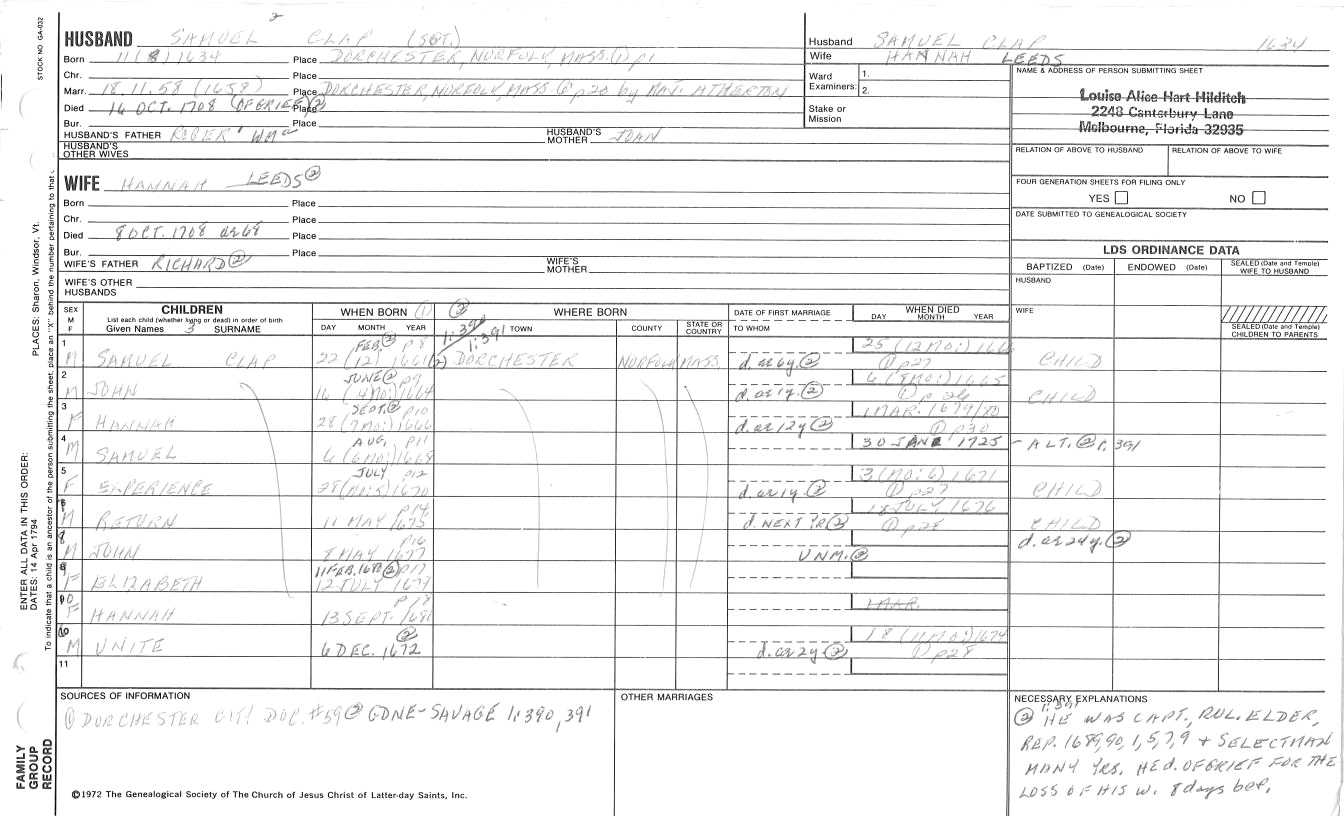 STOCK NO. GA-032
HUSBAND SAMUEL CLAP (SGT.)
Born 11 (8) 1634 Place DORCHESTER, NORFOLK, MASS. (1) p1
Chr. Place
Marr. 18.11.58 (1658) Place DORCHESTER, NORFOLK, MASS (1) p20 by MAJ. ATHERTON
Died 16 OCT. 1708 (OF GRIEF) (2) Place
Bur. Place
HUSBAND'S FATHER ROGER HUSBAND'S MOTHER JOAN
HUSBAND'S OTHER WIVES
WIFE HANNAH LEEDS (2)
Born Place
Chr. Place
Died 8 OCT. 1708 ae 68 Place
Bur. Place
WIFE'S FATHER RICHARD (2) WIFE'S MOTHER
WIFE'S OTHER HUSBANDS
Husband SAMUEL CLAP 1634
Wife HANNAH LEEDS
Ward Examiners: 1.
2.
Stake or Mission
NAME & ADDRESS OF PERSON SUBMITTING SHEET
Louise Alice Hart Hilditch
2248 Canterbury Lane
Melbourne, Florida 32935
RELATION OF ABOVE TO HUSBAND RELATION OF ABOVE TO WIFE
FOUR GENERATION SHEETS FOR FILING ONLY
YES NO
DATE SUBMITTED TO GENEALOGICAL SOCIETY
LDS ORDINANCE DATA
BAPTIZED (Date) ENDOWED (Date) SEALED (Date and Temple) WIFE TO HUSBAND
HUSBAND
WIFE
SEALED (Date and Temple) CHILDREN TO PARENTS
SEX M F
CHILDREN
List each child (whether living or dead) in order of birth
Given Names 3 SURNAME
WHEN BORN (1) (2)
DAY MONTH YEAR
WHERE BORN
1:390 1:391 TOWN COUNTY STATE OR COUNTRY
DATE OF FIRST MARRIAGE
TO WHOM
WHEN DIED
DAY MONTH YEAR
1 M SAMUEL CLAP FEB (2) p8 22 (12) 1661 (2) DORCHESTER NORFOLK MASS. d. ae 6y. (2) 25 (12 MO:) 166 (1) p27 CHILD
2 M JOHN JUNE (2) p9 16 (4 MO:) 1664 d. ae 1y. (2) 6 (8 MO:) 1665 (1) p 26 CHILD
3 F HANNAH SEPT. (2) p10 28 (7 MO:) 1666 d. ae 12y (2) 1 MAR. 1679/80 (1) p30
4 M SAMUEL AUG, p11 6 (6 MO:) 1668 30 JAN 1725 - ALT. (2) P. 391
5 F EXPERIENCE JULY p12 28 (MO:5) 1670 d. ae 1y. (2) 3 (MO:6) 1671 (1) p27 CHILD
M RETURN p14 11 MAY 1675 d. NEXT YR (2) 18 JULY 1676 (1) p28 CHILD
8 M JOHN p16 8 MAY 1677 UNM. (2) d. ae 24y. (2)
F ELIZABETH 11 FEB. (2) p17 12 JULY 1679
F HANNAH p18 13 SEPT. 1681 MAR.
10 M UNITE (2) 6 DEC. 1672 d. ae 2y (2) 18 (11 MO:) 1674 (1) p28
11
SOURCES OF INFORMATION
(1) DORCHESTER CITY DOC. #59 (2) GDNE-SAVAGE 1:390, 391
OTHER MARRIAGES
NECESSARY EXPLANATIONS
1:391
(2) HE WAS CAPT., RUL. ELDER,
REP. 1689, 90, 1, 5, 7, 9 + SELECTMAN
MANY YRS, HE d. OF GRIEF FOR THE
LOSS OF HIS W. 8 days bef.
©1972 The Genealogical Society of The Church of Jesus Christ of Latter-day Saints, Inc.
ENTER ALL DATA IN THIS ORDER:
DATES: 14 Apr 1794
PLACES: Sharon, Windsor, Vt.
To indicate that a child is an ancestor of the person submitting the sheet, place an "X" behind the number pertaining to that
FAMILY GROUP RECORD